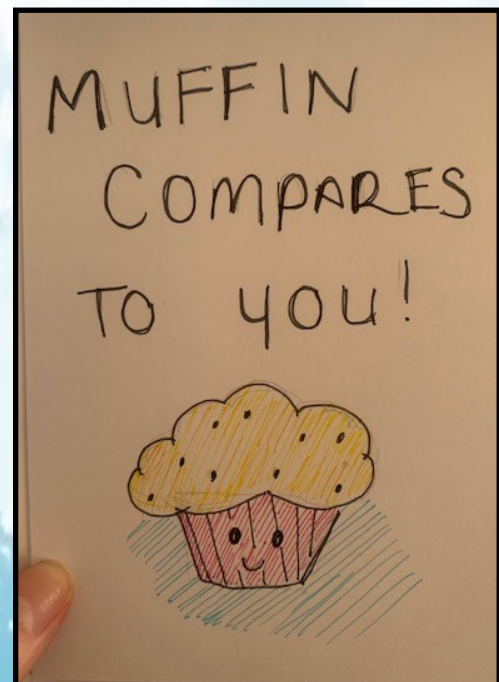 MUFFIN
COMPARES
TO YOU!